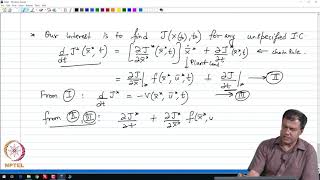 * Our interest is to find J(x(t₀), t₀) for any unspecified I.C
d/dt J*(x*, t) = [∂J*/∂x* (x*, t)]' ẋ* + ∂J*/∂t (x*, t) ← chain Rule.
↓ Plant Cond
= ∂J*/∂x |* f(x*, u*, t) + ∂J/∂t |* → II
From I : d/dt J* = -V(x*, u*, t) → III
from II III : ∂J*/∂t + ∂J*/∂x* f(x*, u
NPTEL